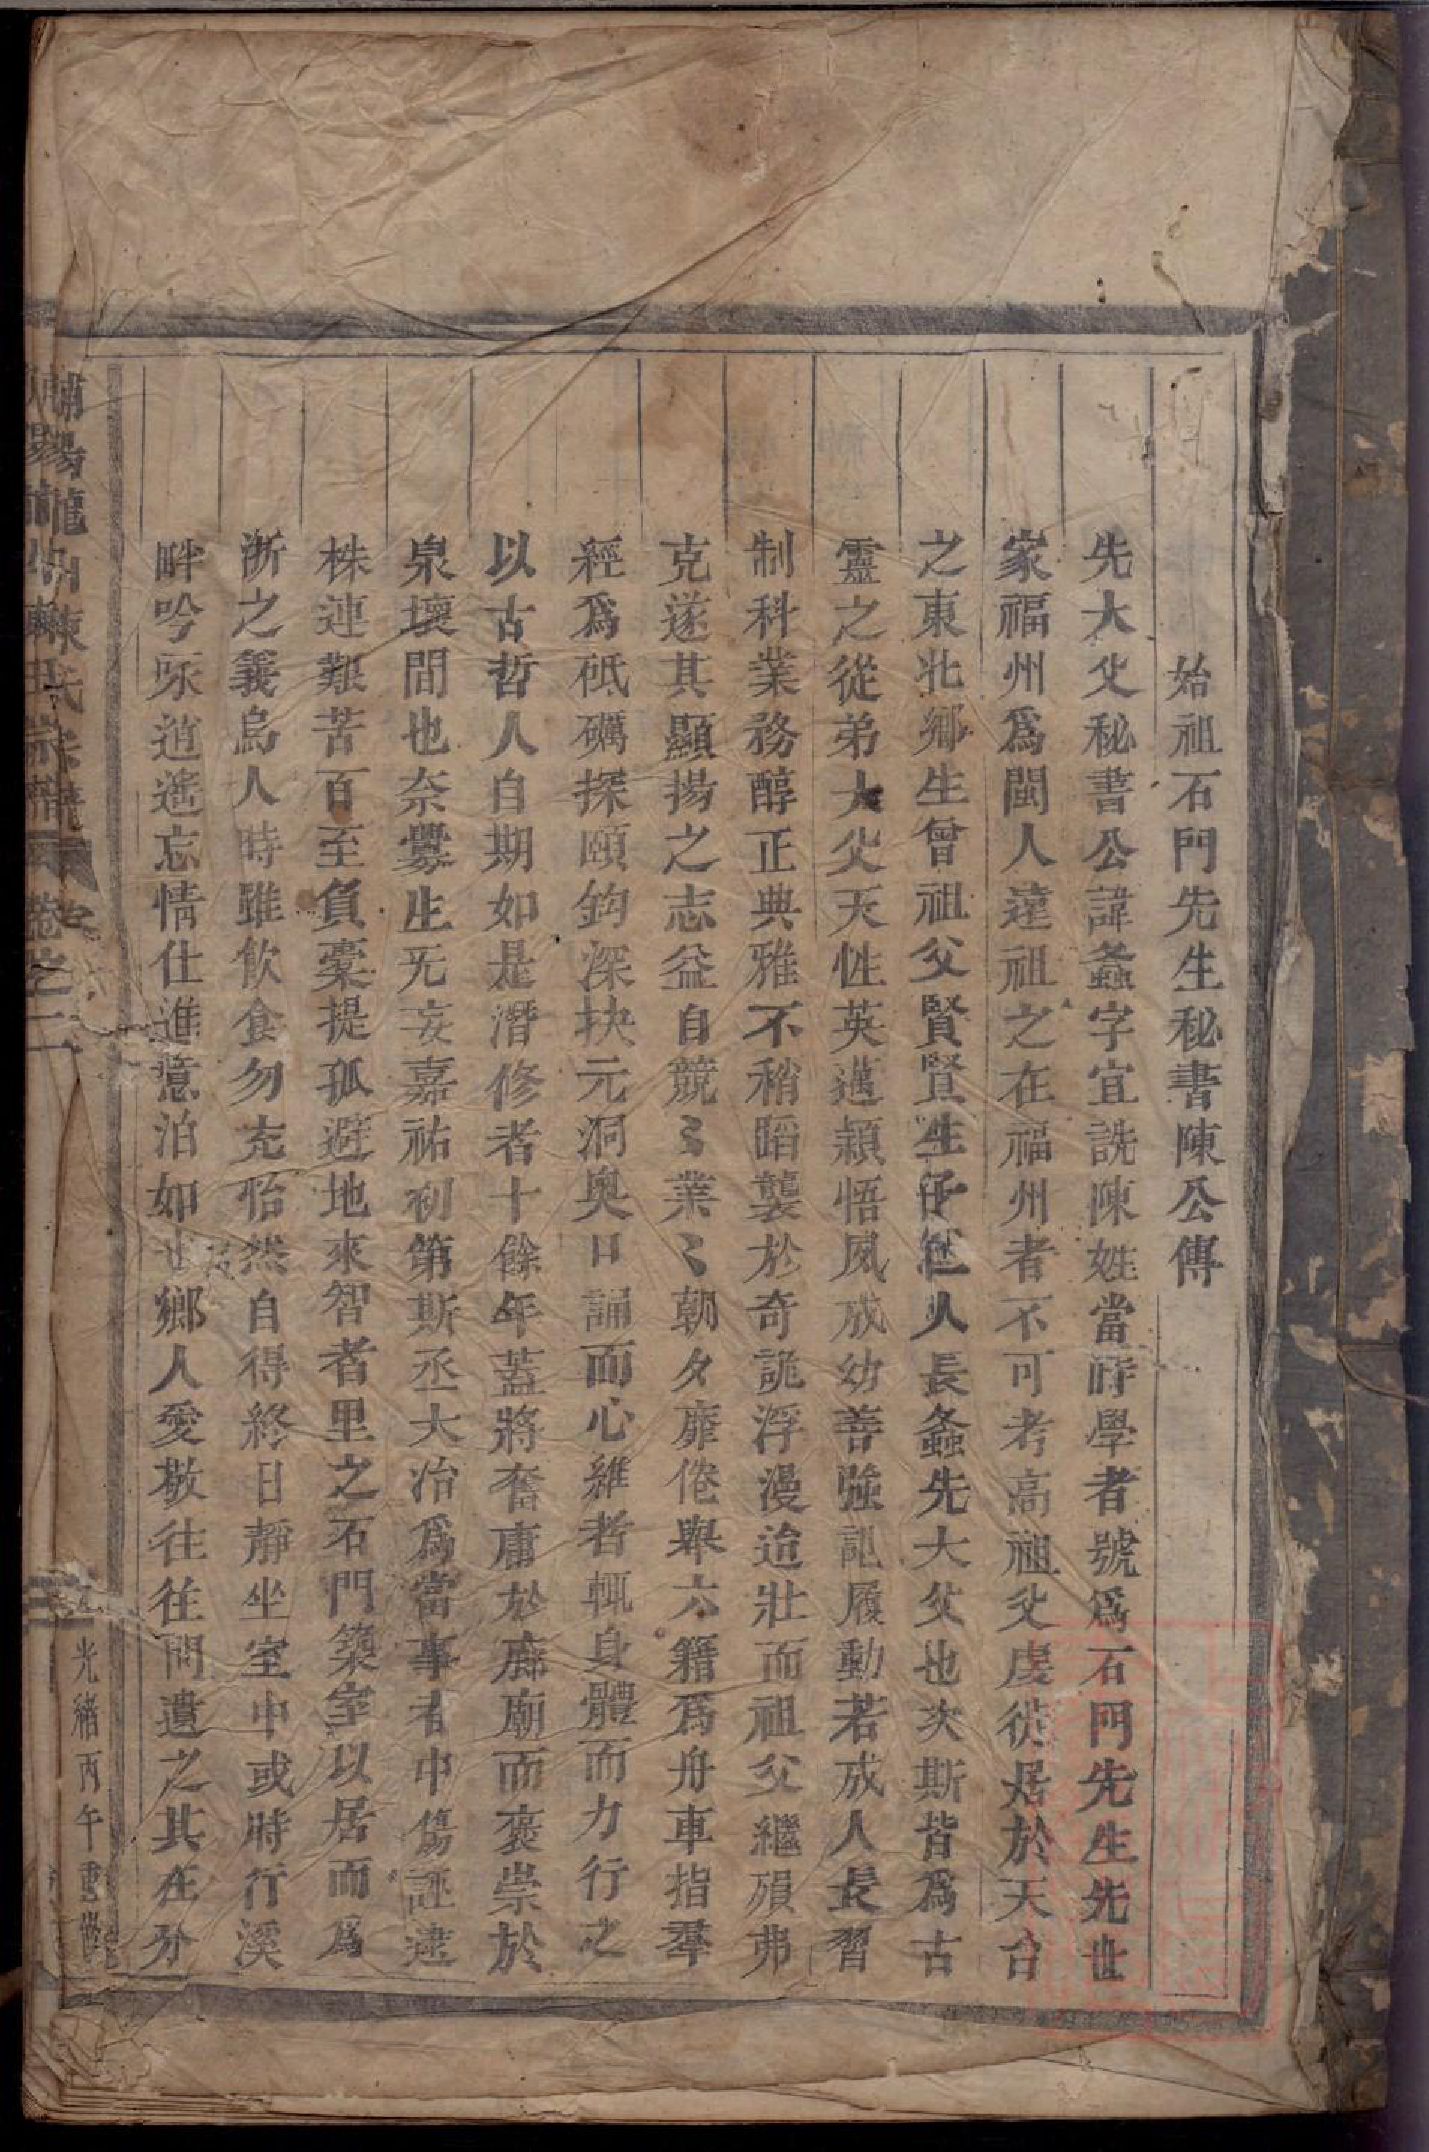 始祖石門先生秘書陳公傳
先大父秘書公諱螽字宜詵陳姓當時學者號爲石門先生先世
家福州爲閩人遠祖之在福州者不可考高祖父虔徙居於天台
之東北鄉生曾祖父賢賢生仔仔仁人長螽先大父也次斯皆爲古
靈之從弟大父天性英邁穎悟夙成幼善強記履動若成人長習
制科業務醇正典雅不稍蹈襲於奇詭浮漫迨壯而祖父繼殞弗
克遂其顯揚之志益自競〻業〻朝夕靡倦舉六籍爲舟車指羣
經爲砥礪探頤鈎深抉元洞奥日誦而心維者輒身體而力行之
以古哲人自期如是潛修者十餘年蓋將奮庸於廊廟而褒崇於
泉壤間也奈釁生无妄嘉祐初第斯丞大冶爲當事者中傷誣逮
株連艱苦百至負橐提孤避地來智者里之石門築室以居而爲
浙之義烏人時雖飲食勿充怡然自得終日靜坐室中或時行溪
畔吟咏逍遙忘情仕進意泊如也鄉人愛敬往往問遺之其在分
龍山陳氏宗譜 卷之一
光緒丙午重鐫